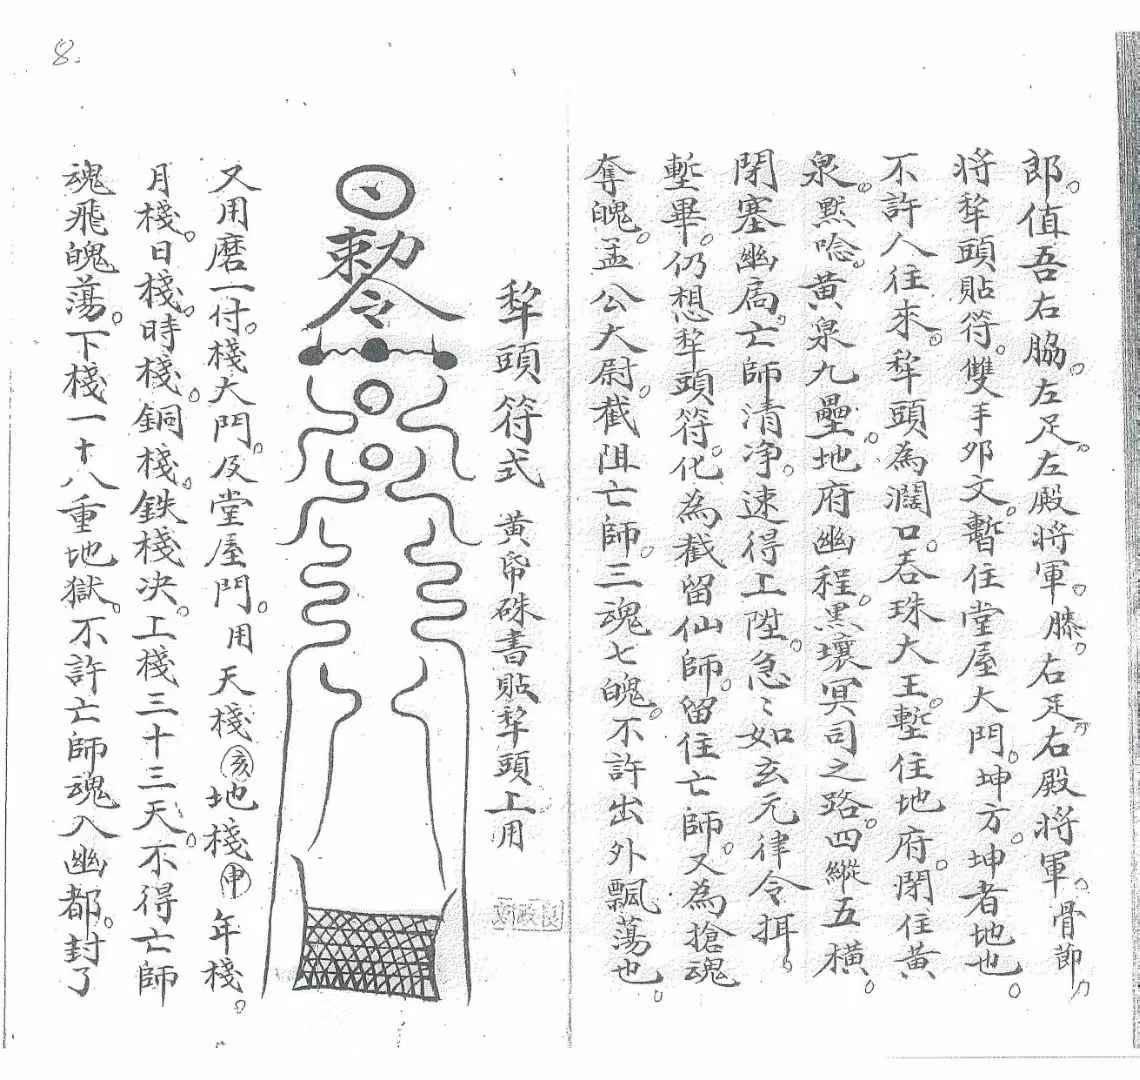 郎。值吾右脇。左足。左殿將軍。膝。右足。右殿將軍。骨節
將犂頭貼符。雙手卭文。暫住堂屋大門。坤方。坤者地也。
不許人往來。犂頭為濶口。吞珠大王。塹住地府。閉住黃
泉。黙唸。黃泉九壘。地府幽程。黑壤冥司之路。四縱五橫。
閉塞幽局。亡師清净。速得上陞。急〻如玄元律令拜。
塹畢。仍想犂頭符。化為截留仙師。留住亡師。又為搶魂
奪魄。孟公大尉。截阻亡師。三魂七魄。不許出外飄蕩也。
犂頭符式 黃帋硃書貼犂頭上用
勅令
又用磨一付。棧大門。及堂屋門。用天棧亥地棧申年棧。
月棧。日棧。時棧。銅棧。鉄棧决。上棧三十三天。不得亡師
魂飛魄蕩。下棧一十八重地獄。不許亡師魂入幽都。封了
8.